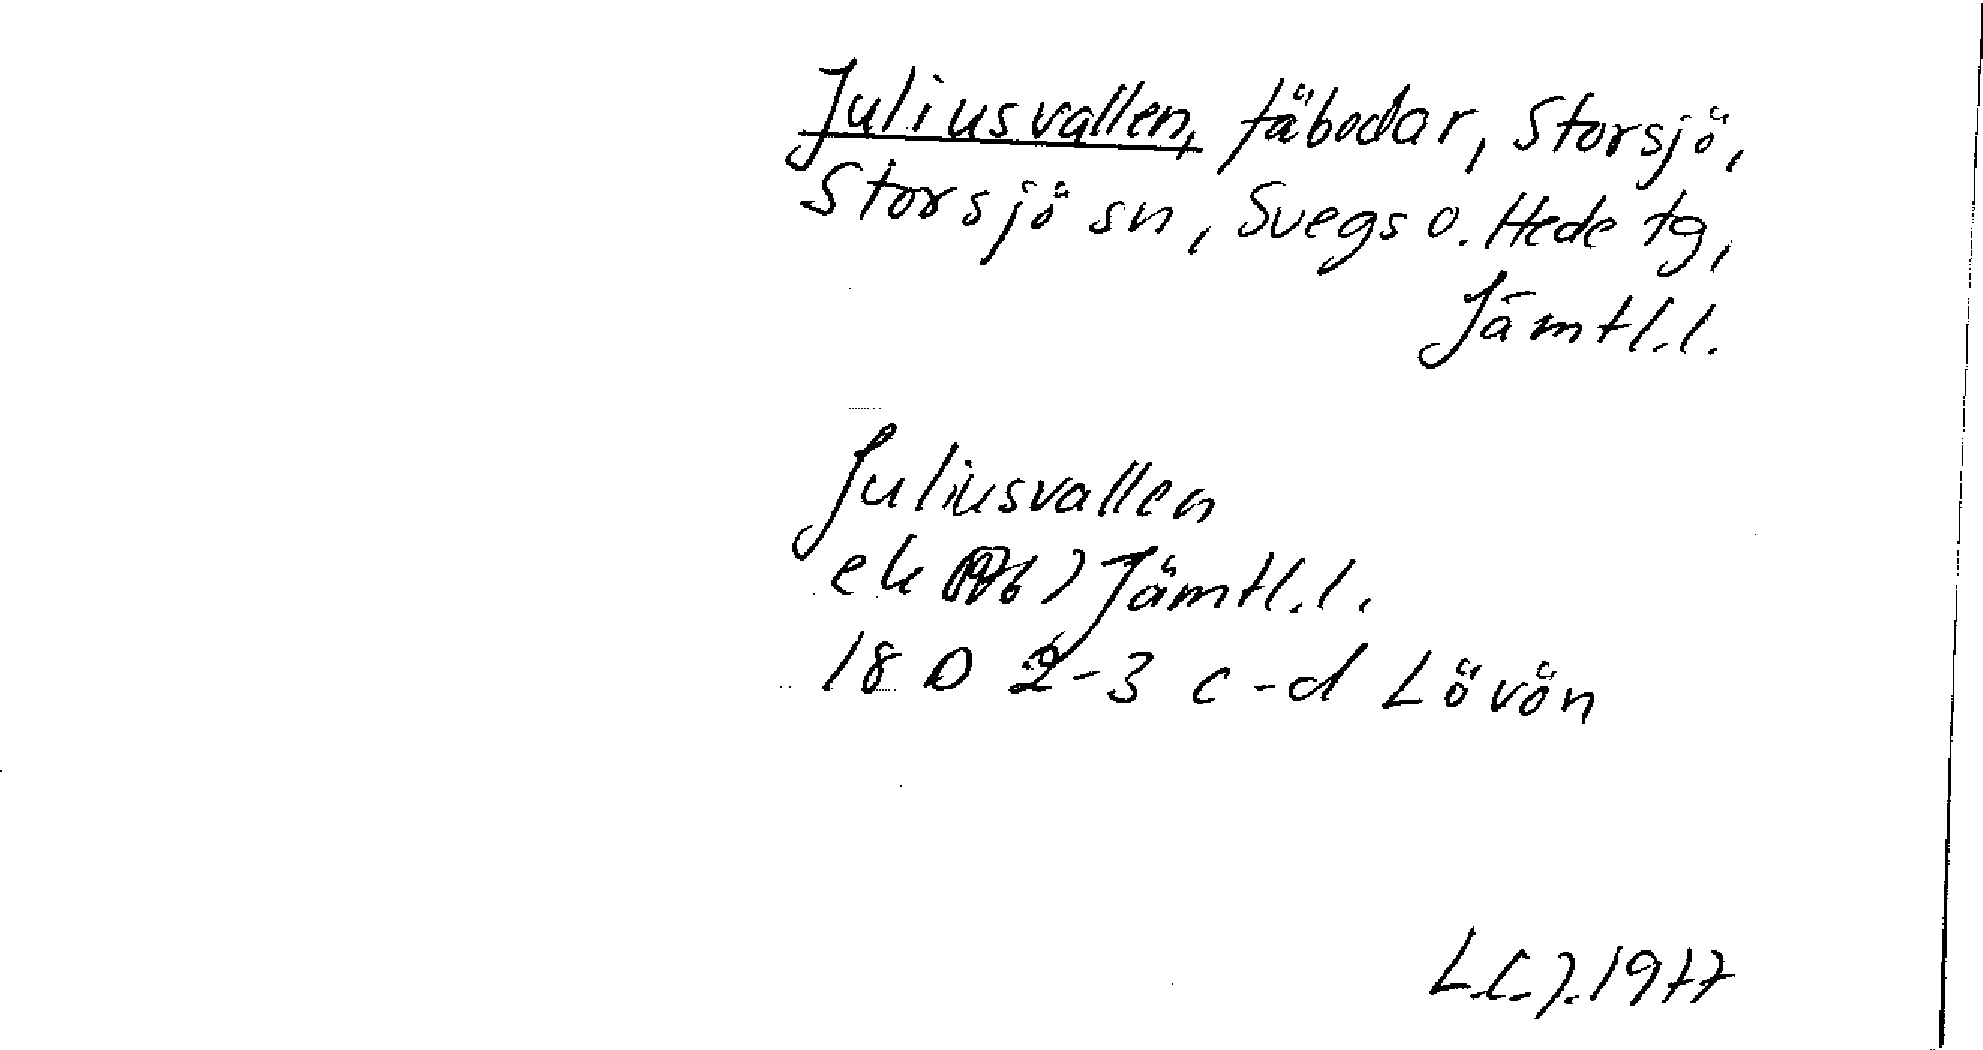 Juliusvallen, fäbodar, Storsjö,
Storsjö sn, Svegs o. Hede tg,
Jämtl.l.
Juliusvallen
ek (1976) Jämtl.l.
18 D 2-3 c-d Lövön
L.C.J. 1977